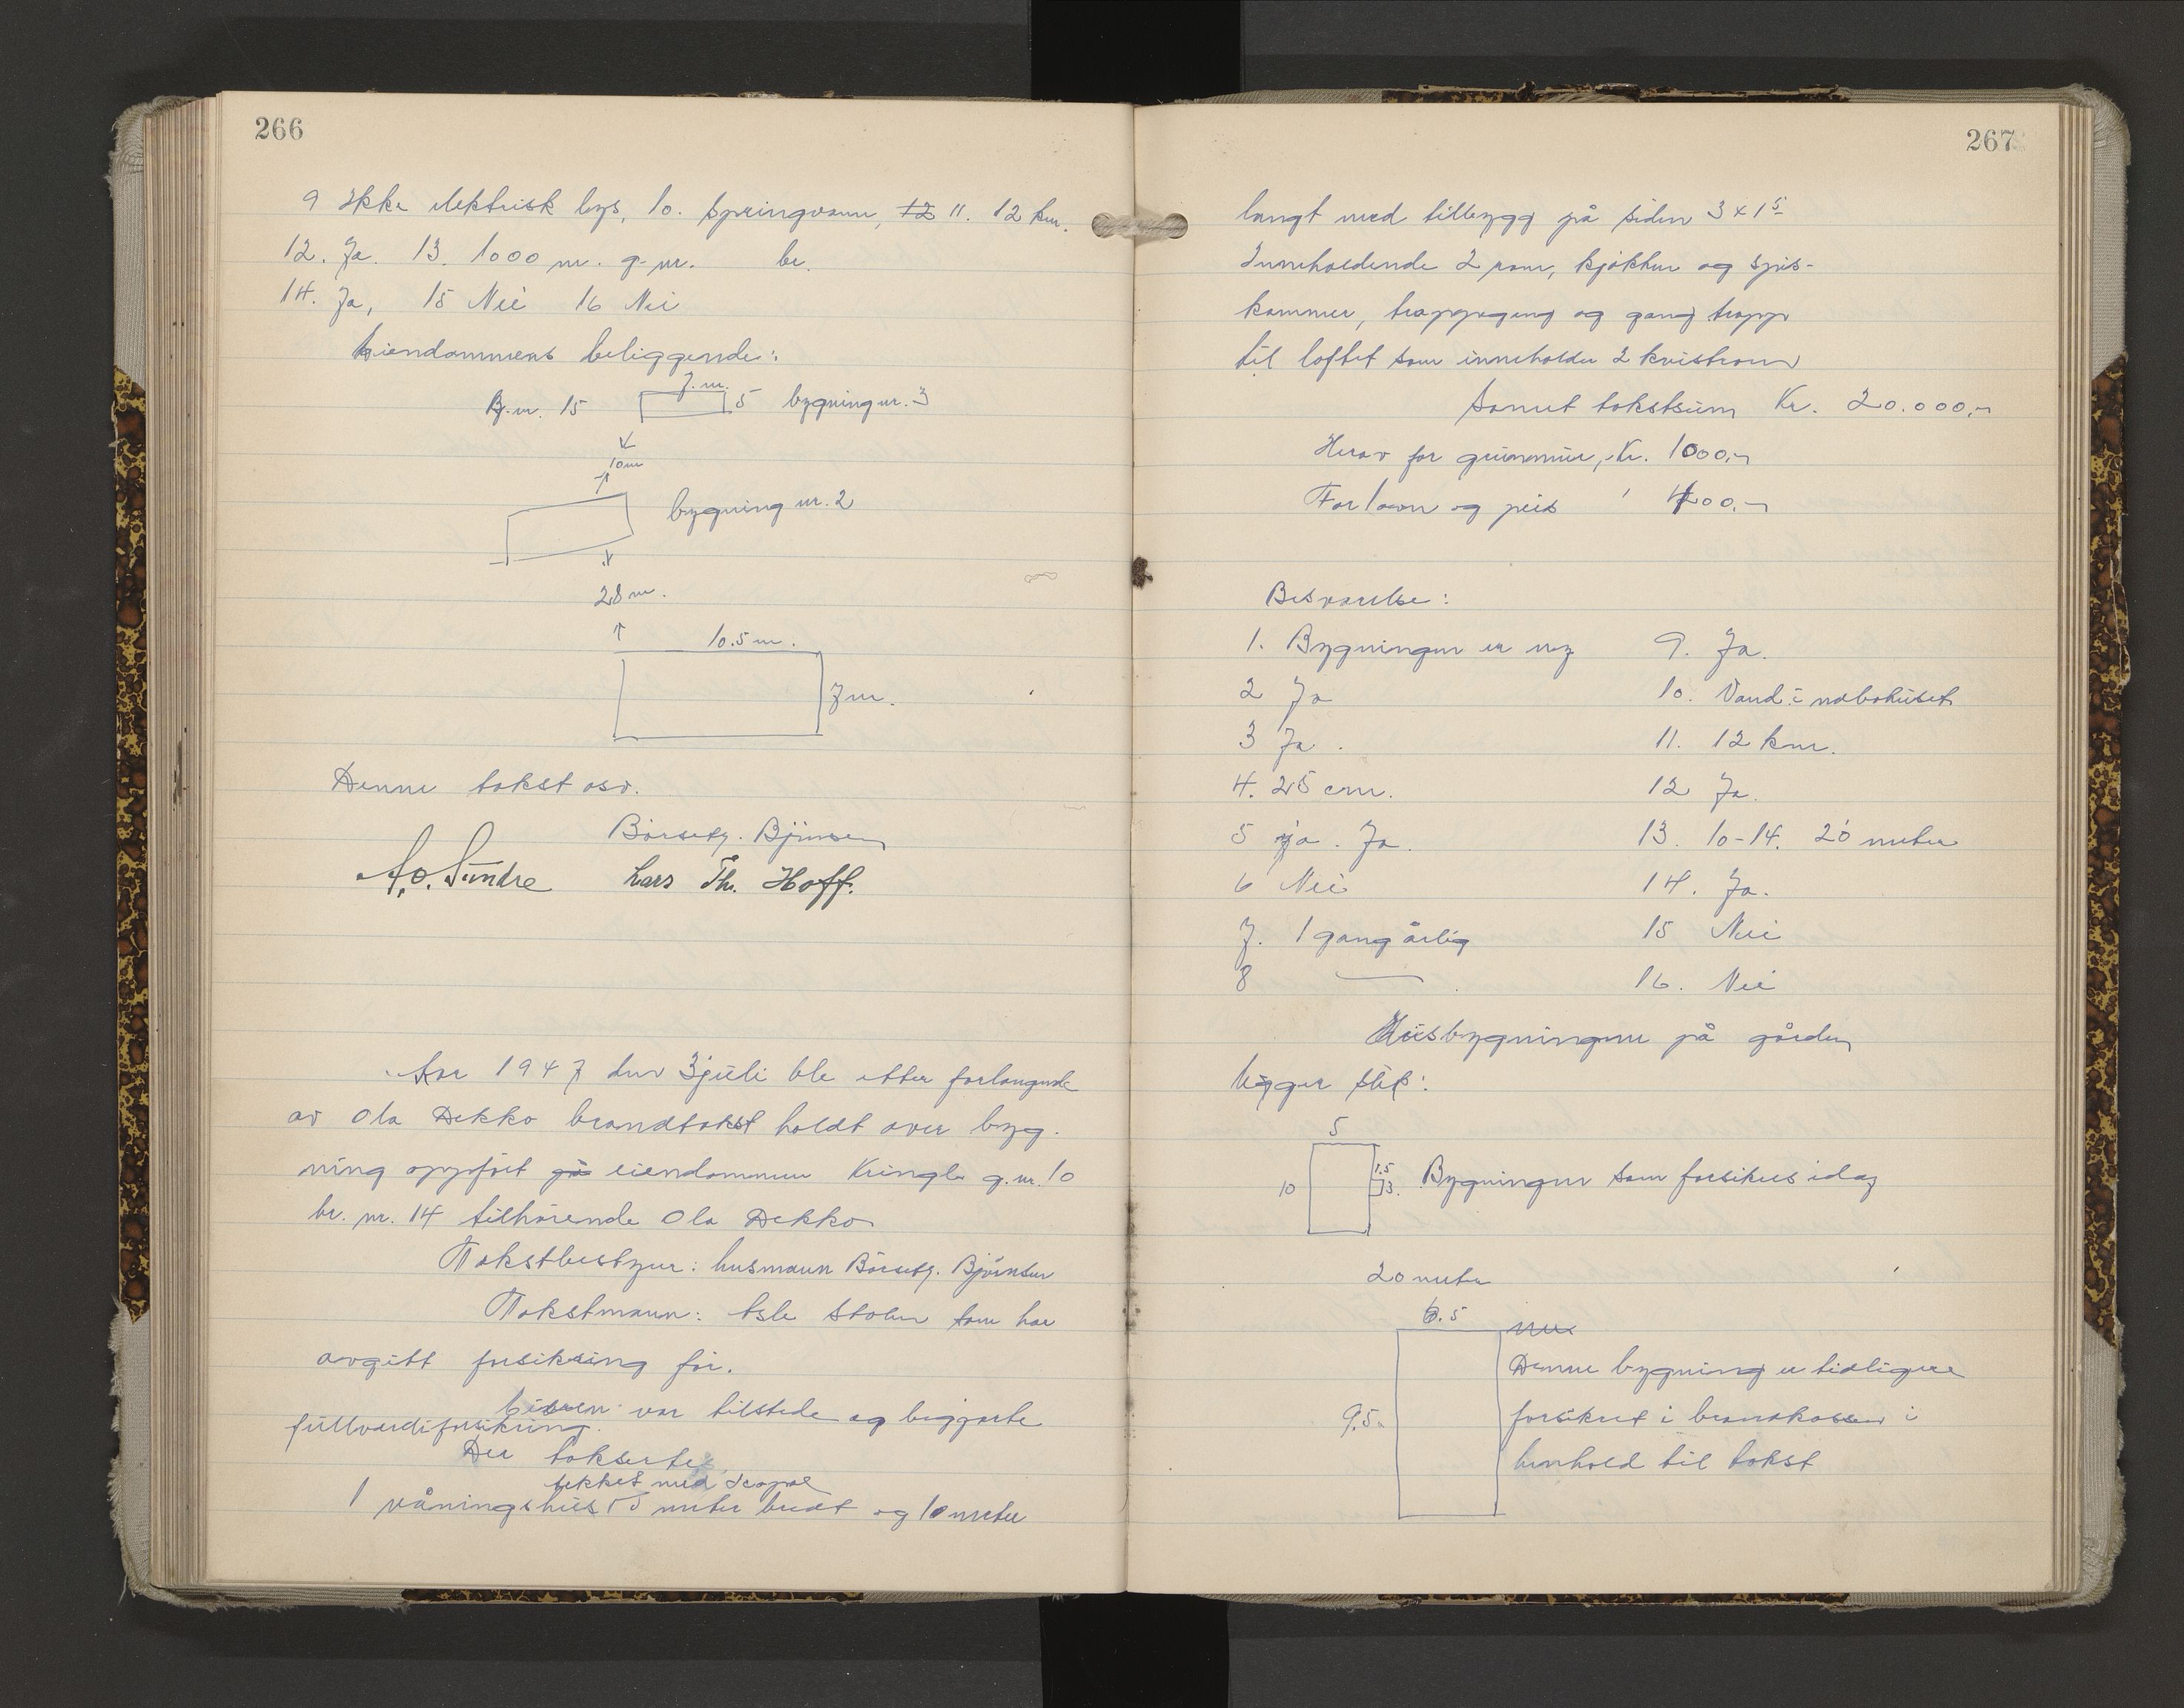 266
9 Ikke elektrisk lys, 10. Springvann, 12 11. 12 km.
12. Ja. 13. 1000 m. g-nr. br.
14. Ja, 15 Nei 16 Nei
Eiendommens beliggende:
B.nr. 15 7.m. 5 bygning nr. 3
10m
bygning nr. 2
28 m.
10.5 m.
7m.
Denne takst osv.
Bårsetg. Björnsen
A.O. Sundre Lars Th. Hoff.
Aar 1947 den 3 juli ble etter forlangende
av Ola Dekko brandtakst holdt over byg-
ning oppfört på eiendommen Kringla g.nr. 10
br. nr. 14 tilhörende Ola Dekko
Takstbestyrer: lensmann Bårsetg. Björnsen
Takstmann: Asle Stolen som har
avgitt forsikring för.
Eieren var tilstede og begjærte
fullverdiforsikring.
Der takserte
tekket med
1 våningshus 5 meter bredt og 10 meter
267
langt med tilbygg på siden 3 x 1 5
Inneholdende 2 rom, kjökken og spis-
kammer, trappegang og gang trapp
til loftet som inneholder 2 kvistrom
Samet takstsum Kr. 20.000,-
Herav for grunnmur, Kr. 1000,-
For lovn og peis ' 400.-
Besvarelse:
1. Bygningen er ny 9. Ja.
2 Ja 10. Vand i nabohuset
3 Ja. 11. 12 km.
4. 25 cm. 12 Ja.
5 ja. Ja. 13. 10-14. 20 meter
6 Nei 14. Ja.
7. 1 gang årlig 15 Nei
8 — 16. Nei
Husbygningene på gården
ligger slik:
5
10 1.5 3. Bygningen som forsikres idag
20 meter
6.5
Denne bygning er tidligere
9.5 forsikret i brandkassen i
henhold til takst